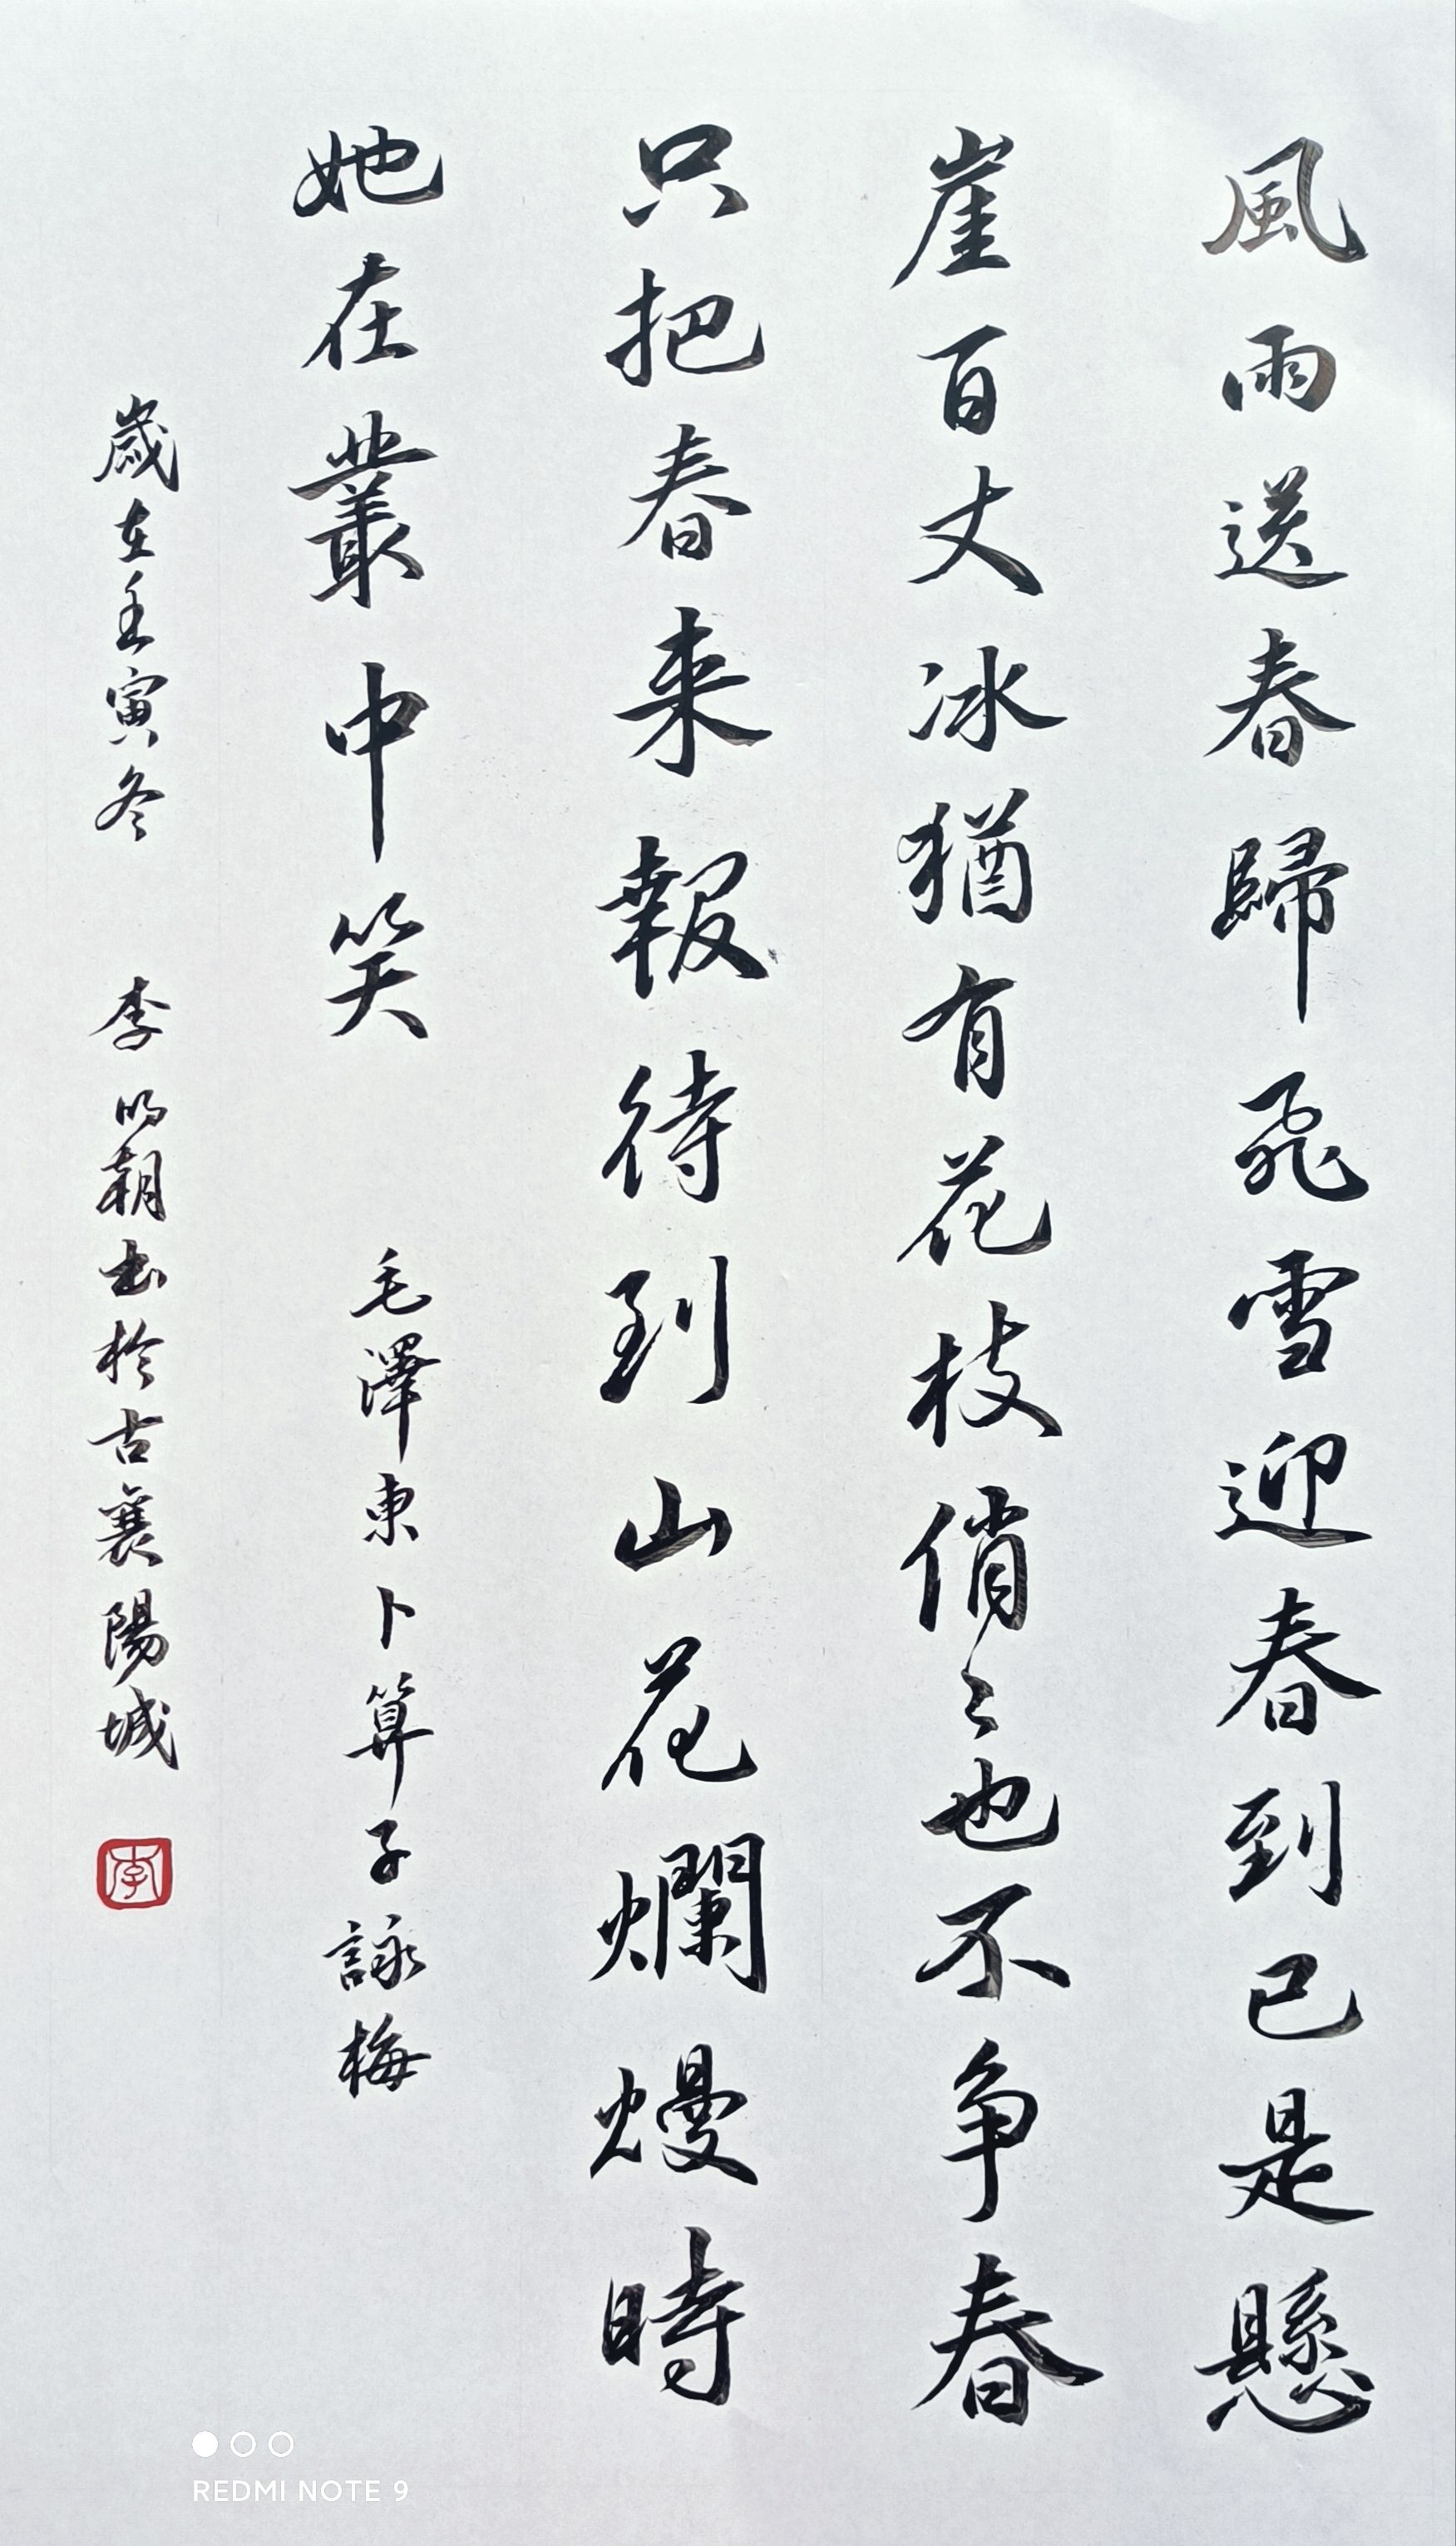 風雨送春歸飛雪迎春到已是懸
崖百丈冰猶有花枝俏〻也不争春
只把春来報待到山花爛熳時
她在叢中笑
毛澤東卜算子詠梅
歲在壬寅冬 李明朝书於古襄陽城
李
REDMI NOTE 9